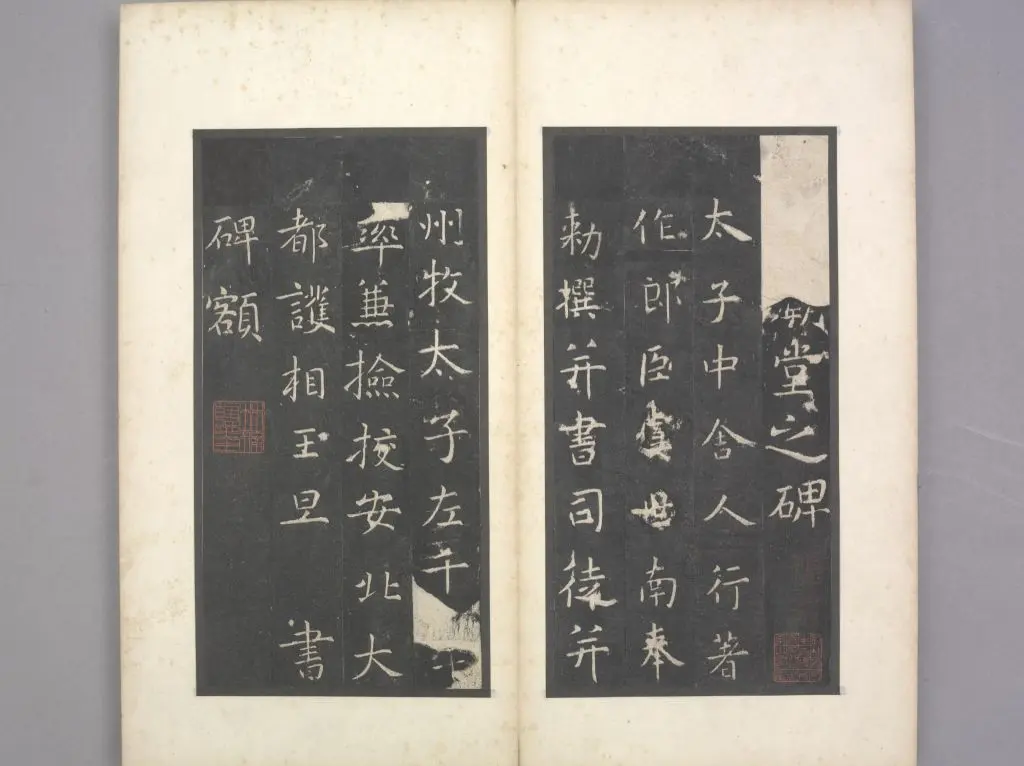 堂之碑
太子中舍人行著
作郎臣虞世南奉
勑撰并書司徒并
州牧太子左千
率兼撿挍安北大
都護相王旦書
碑額